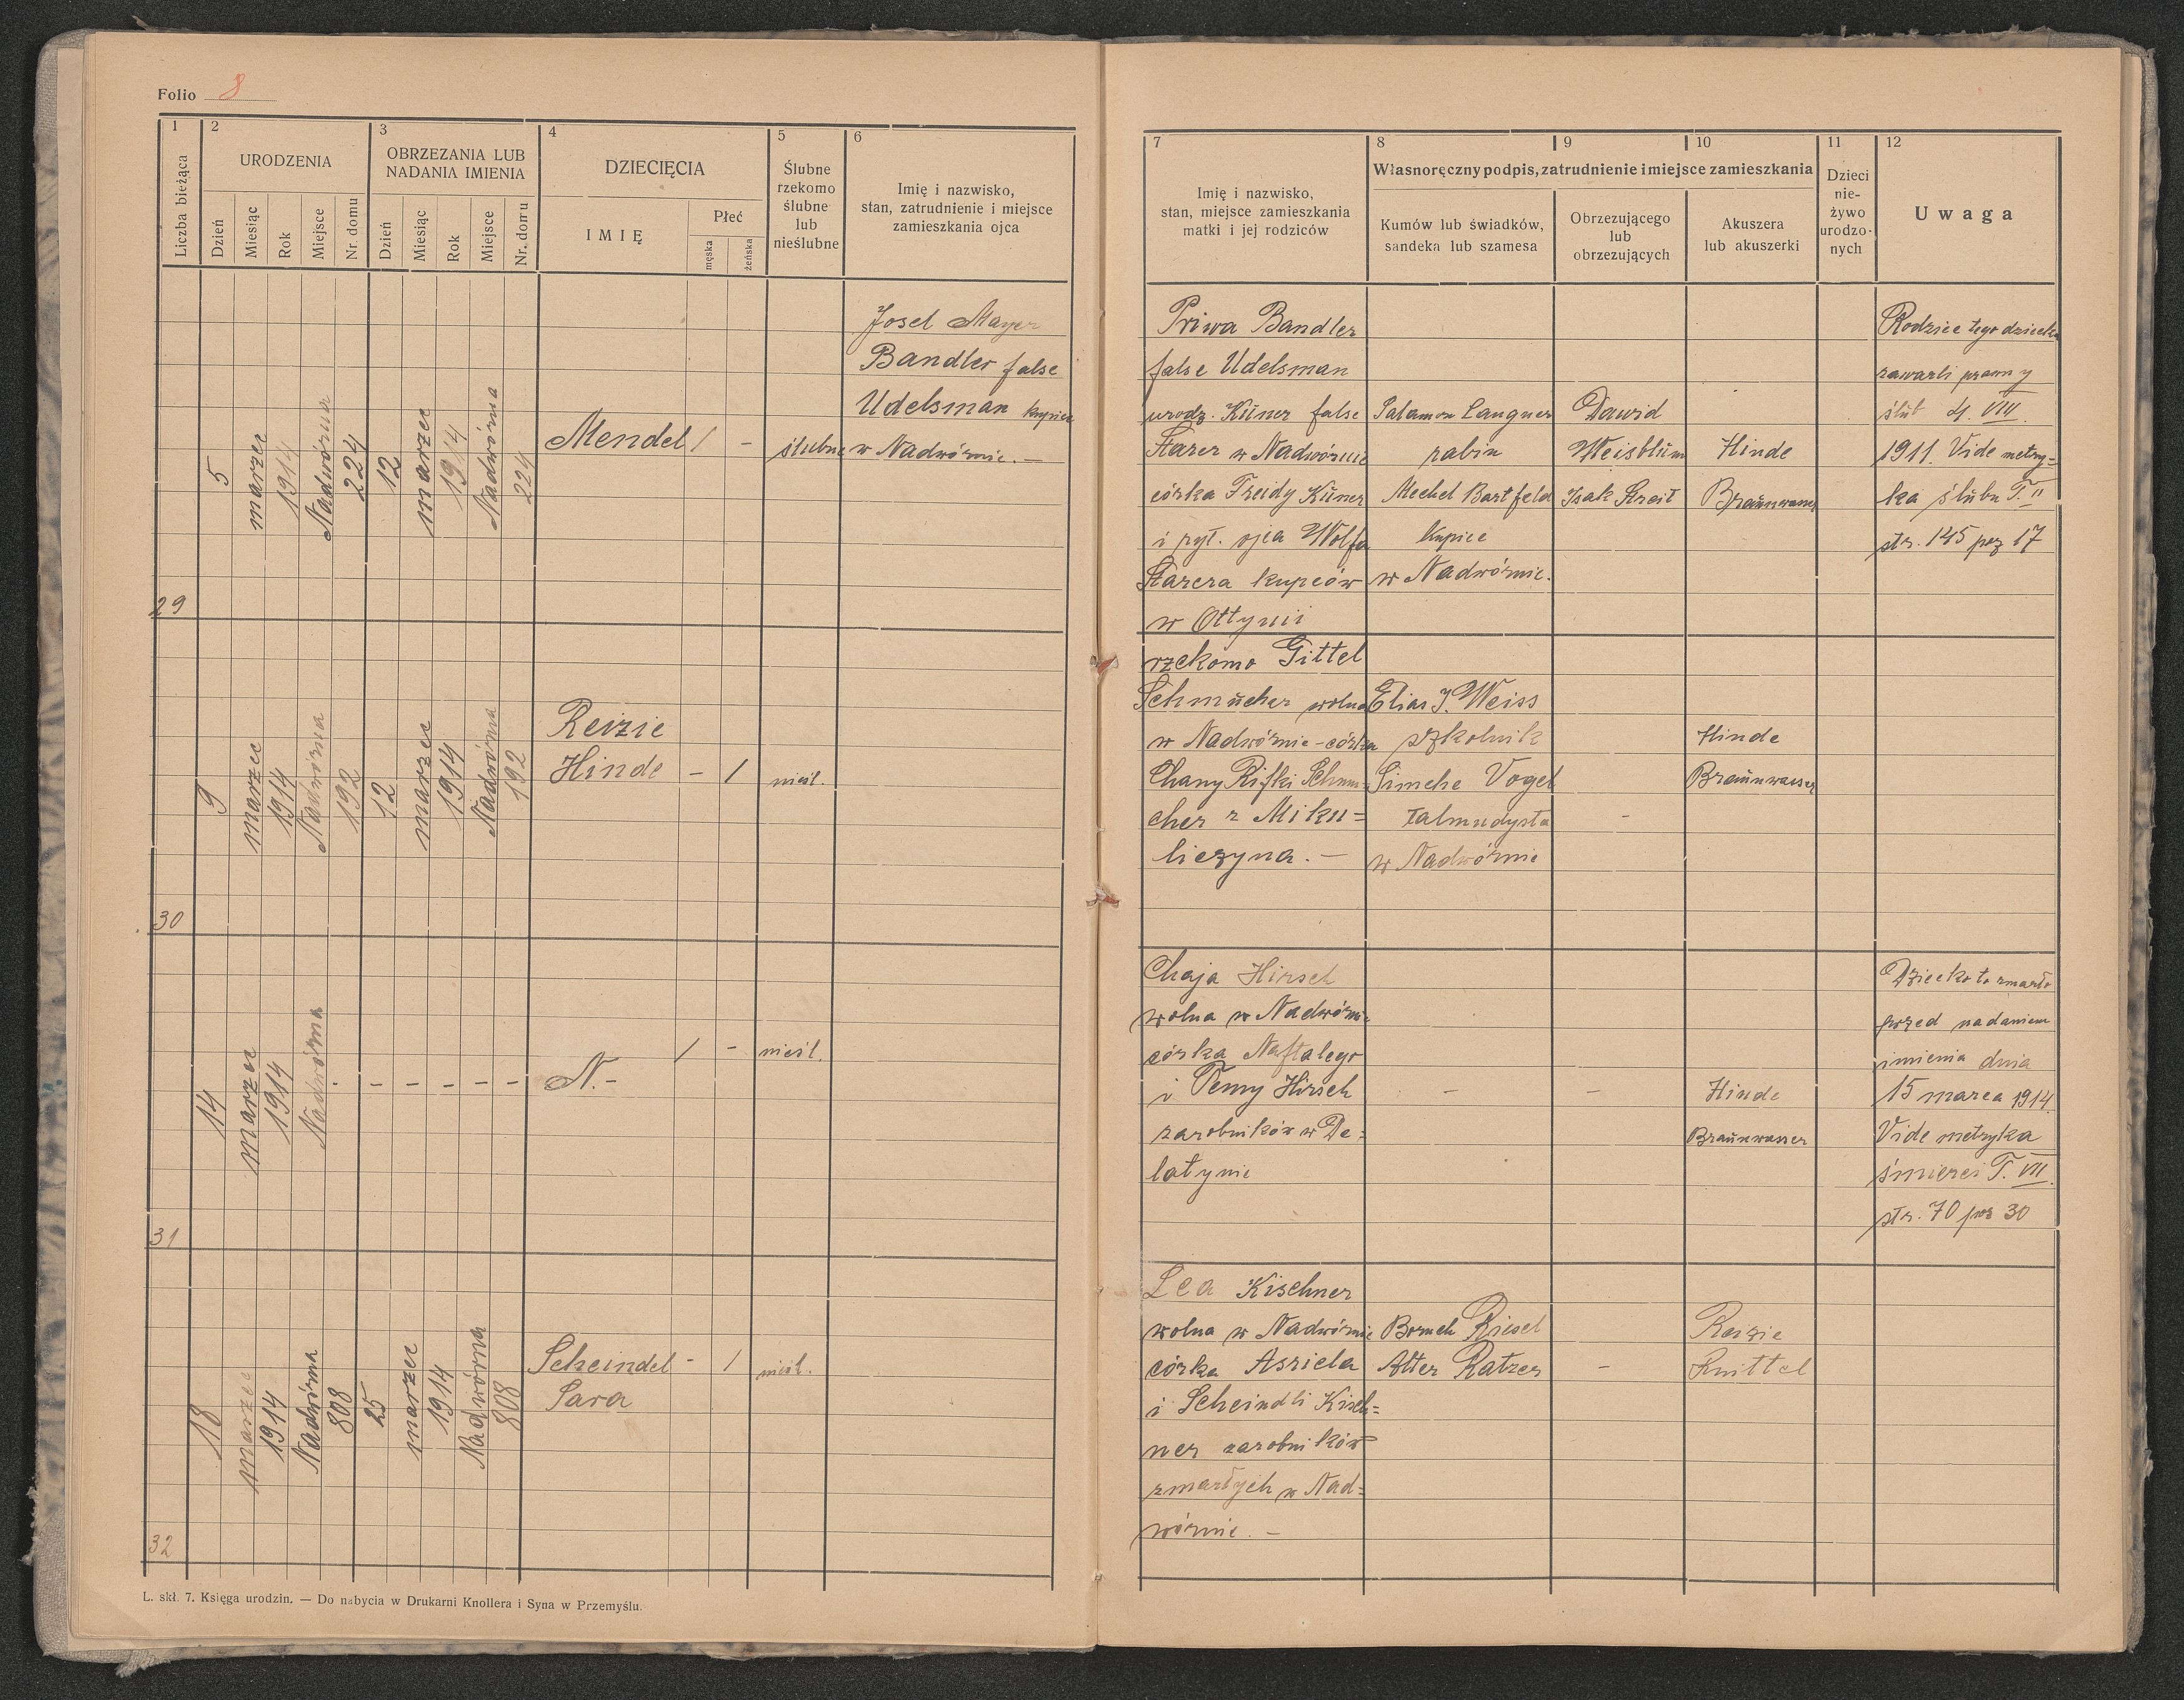 Folio 8
1 2 3 4 5 6
Liczba bieżąca
URODZENIA
OBRZEZANIA LUB
NADANIA IMIENIA
DZIECIĘCIA
Ślubne
rzekomo
ślubne
lub
nieślubne
Imię i nazwisko,
stan, zatrudnienie i miejsce
zamieszkania ojca
Dzień Miesiąc Rok Miejsce Nr. domu
Dzień Miesiąc Rok Miejsce Nr. domu
IMIĘ
Płeć
męska żeńska
29
5 marzec 1914 Nadwórna 224
12 marzec 1914 Nadwórna 224
Mendel / -
ślubne
Josel Mayer
Bandler false
Udelsman kupiec
w Nadwórnie. —
30
9 marzec 1914 Nadwórna 192
12 marzec 1914 Nadwórna 192
Reizie
Hinde - /
nieśl.
31
14 marzec 1914 Nadwórna -
- - - - -
N. -
/ - nieśl.
32
18 marzec 1914 Nadwórna 808
25 marzec 1914 Nadwórna 808
Scheindel - /
Sara
nieśl.
L. skł. 7. Księga urodzin. — Do nabycia w Drukarni Knollera i Syna w Przemyślu.
7 8 9 10 11 12
Imię i nazwisko,
stan, miejsce zamieszkania
matki i jej rodziców
Własnoręczny podpis, zatrudnienie i miejsce zamieszkania
Kumów lub świadków,
sandeka lub szamesa
Obrzezującego
lub
obrzezujących
Akuszera
lub akuszerki
Dzieci
nie-
żywo
urodzo-
nych
Uwaga
Priwa Bandler
false Udelsman
urodz. Küner false
Starer w Nadwórnie
córka Freidy Küner
i ryt. ojca Wolfa
Starera kupców
w Ottynii
Salamon Langner
rabin
Mechel Bartfeld
kupiec
w Nadwórnie.
Dawid
Weisblüm
Isak Streit
Hinde
Braünwasser
Rodzice tego dziecka
zawarli prawny
ślub 4. VIII.
1911. Vide metry=
ka ślubu T. II
str. 145 poz 17
rzekomo Gittel
Schmücher wolna
w Nadwórnie - córka
Chany Rifki Schmu=
cher z Miku=
liczyna. —
Elias J. Weiss
szkolnik
Simche Vogel
talmudysta
w Nadwórnie
-
Hinde
Braünwasser
Chaja Hirsch
wolna w Nadwórnie
córka Naftalego
i Temy Hirsch
zarobników w De=
latynie
-
-
Hinde
Braünwasser
Dziecko to zmarło
przed nadaniem
imienia dnia
15 marca 1914.
Vide metryka
śmierci T. VII.
str. 70 poz 30
Lea Kischner
wolna w Nadwórnie
córka Asriela
i Scheindli Kisch=
ner zarobników
zmarłych w Nad=
wórnie. —
Boruch Riesel
Alter Ratzer
-
Reizie
Knittel